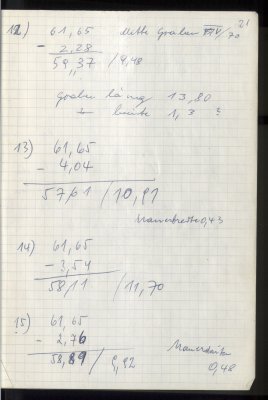 21
12) 61,65 dette Graben XXIV/70
- 2,28
59,37 / 9,48
Graben läng 13,80
+ breite 1,3 ?
13) 61,65
- 4,04
57,61 / 10,91
Mauerbreite 0,43
14) 61,65
- 3,54
58,11 / 11,70
15) 61,65
- 2,76
58,89 / 9,92
0,48